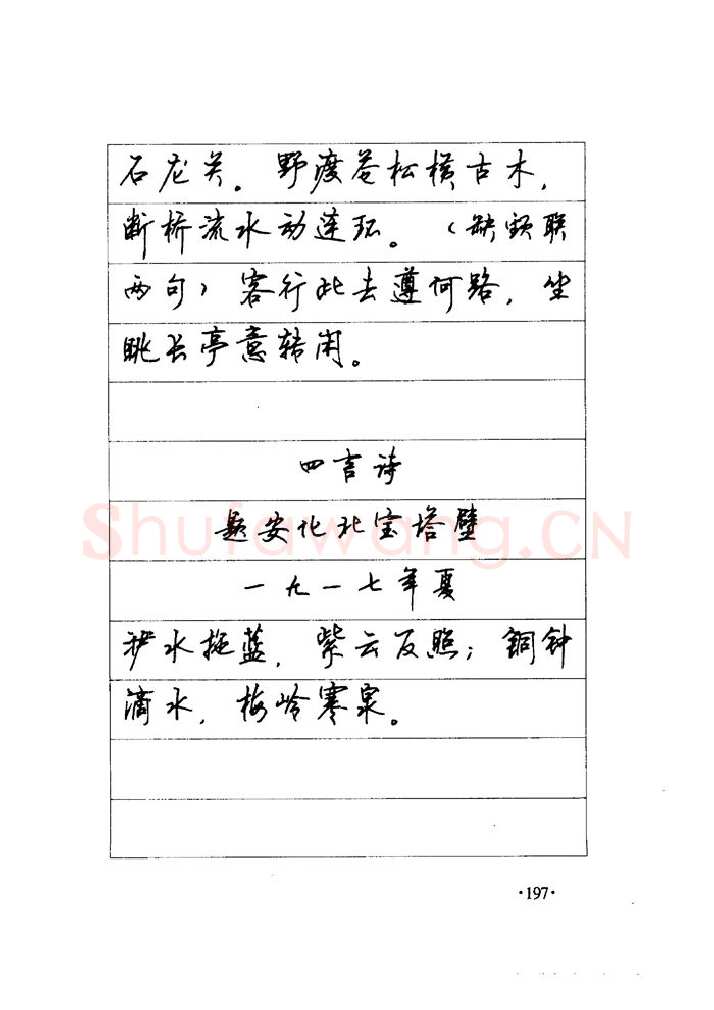 石龙关。野渡苍松横古木，
断桥流水动连环。（缺颈联
两句）客行此去遵何路，坐
眺长亭意转闲。
四言诗
题安化北宝塔壁
一九一七年夏
洢水拖蓝，紫云反照；铜钟
滴水，梅岭寒泉。
Shufawang.CN
·197·